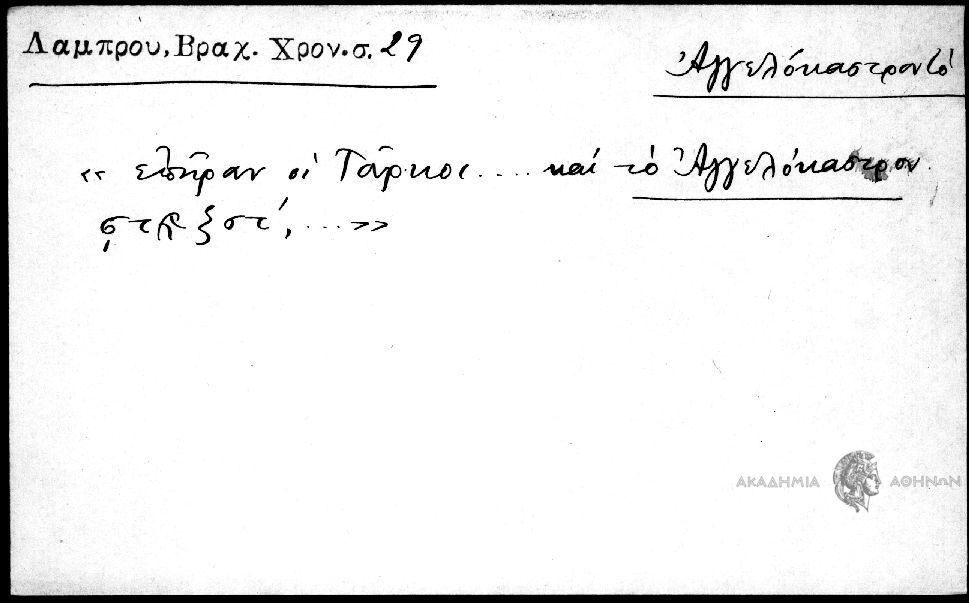 Λαμπρου, Βραχ. Χρον. σ. 29
Ἀγγελόκαστρον τό
«ἐπῆραν οἱ Τοῦρκοι .... καί τό Ἀγγελόκαστρον.
... »
ΑΚΑΔΗΜΙΑ ΑΘΗΝΩΝ